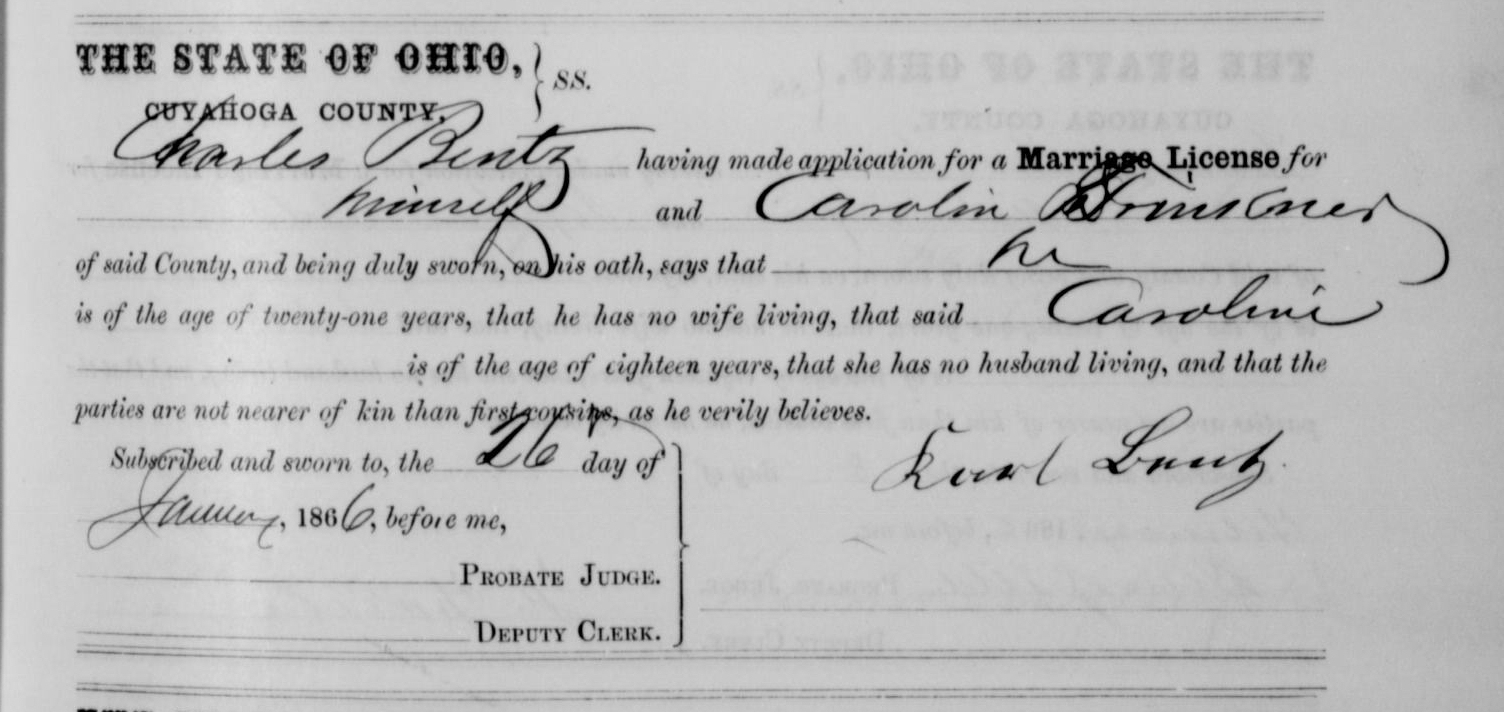 THE STATE OF OHIO, } SS.
CUYAHOGA COUNTY,
Charles Bentz having made application for a Marriage License for
himself and Carolin
of said County, and being duly sworn, on his oath, says that he
is of the age of twenty-one years, that he has no wife living, that said Caroline
is of the age of eighteen years, that she has no husband living, and that the
parties are not nearer of kin than first cousins, as he verily believes.
Subscribed and sworn to, the 26 day of
January, 1866, before me,
Karl Bentz
PROBATE JUDGE.
DEPUTY CLERK.